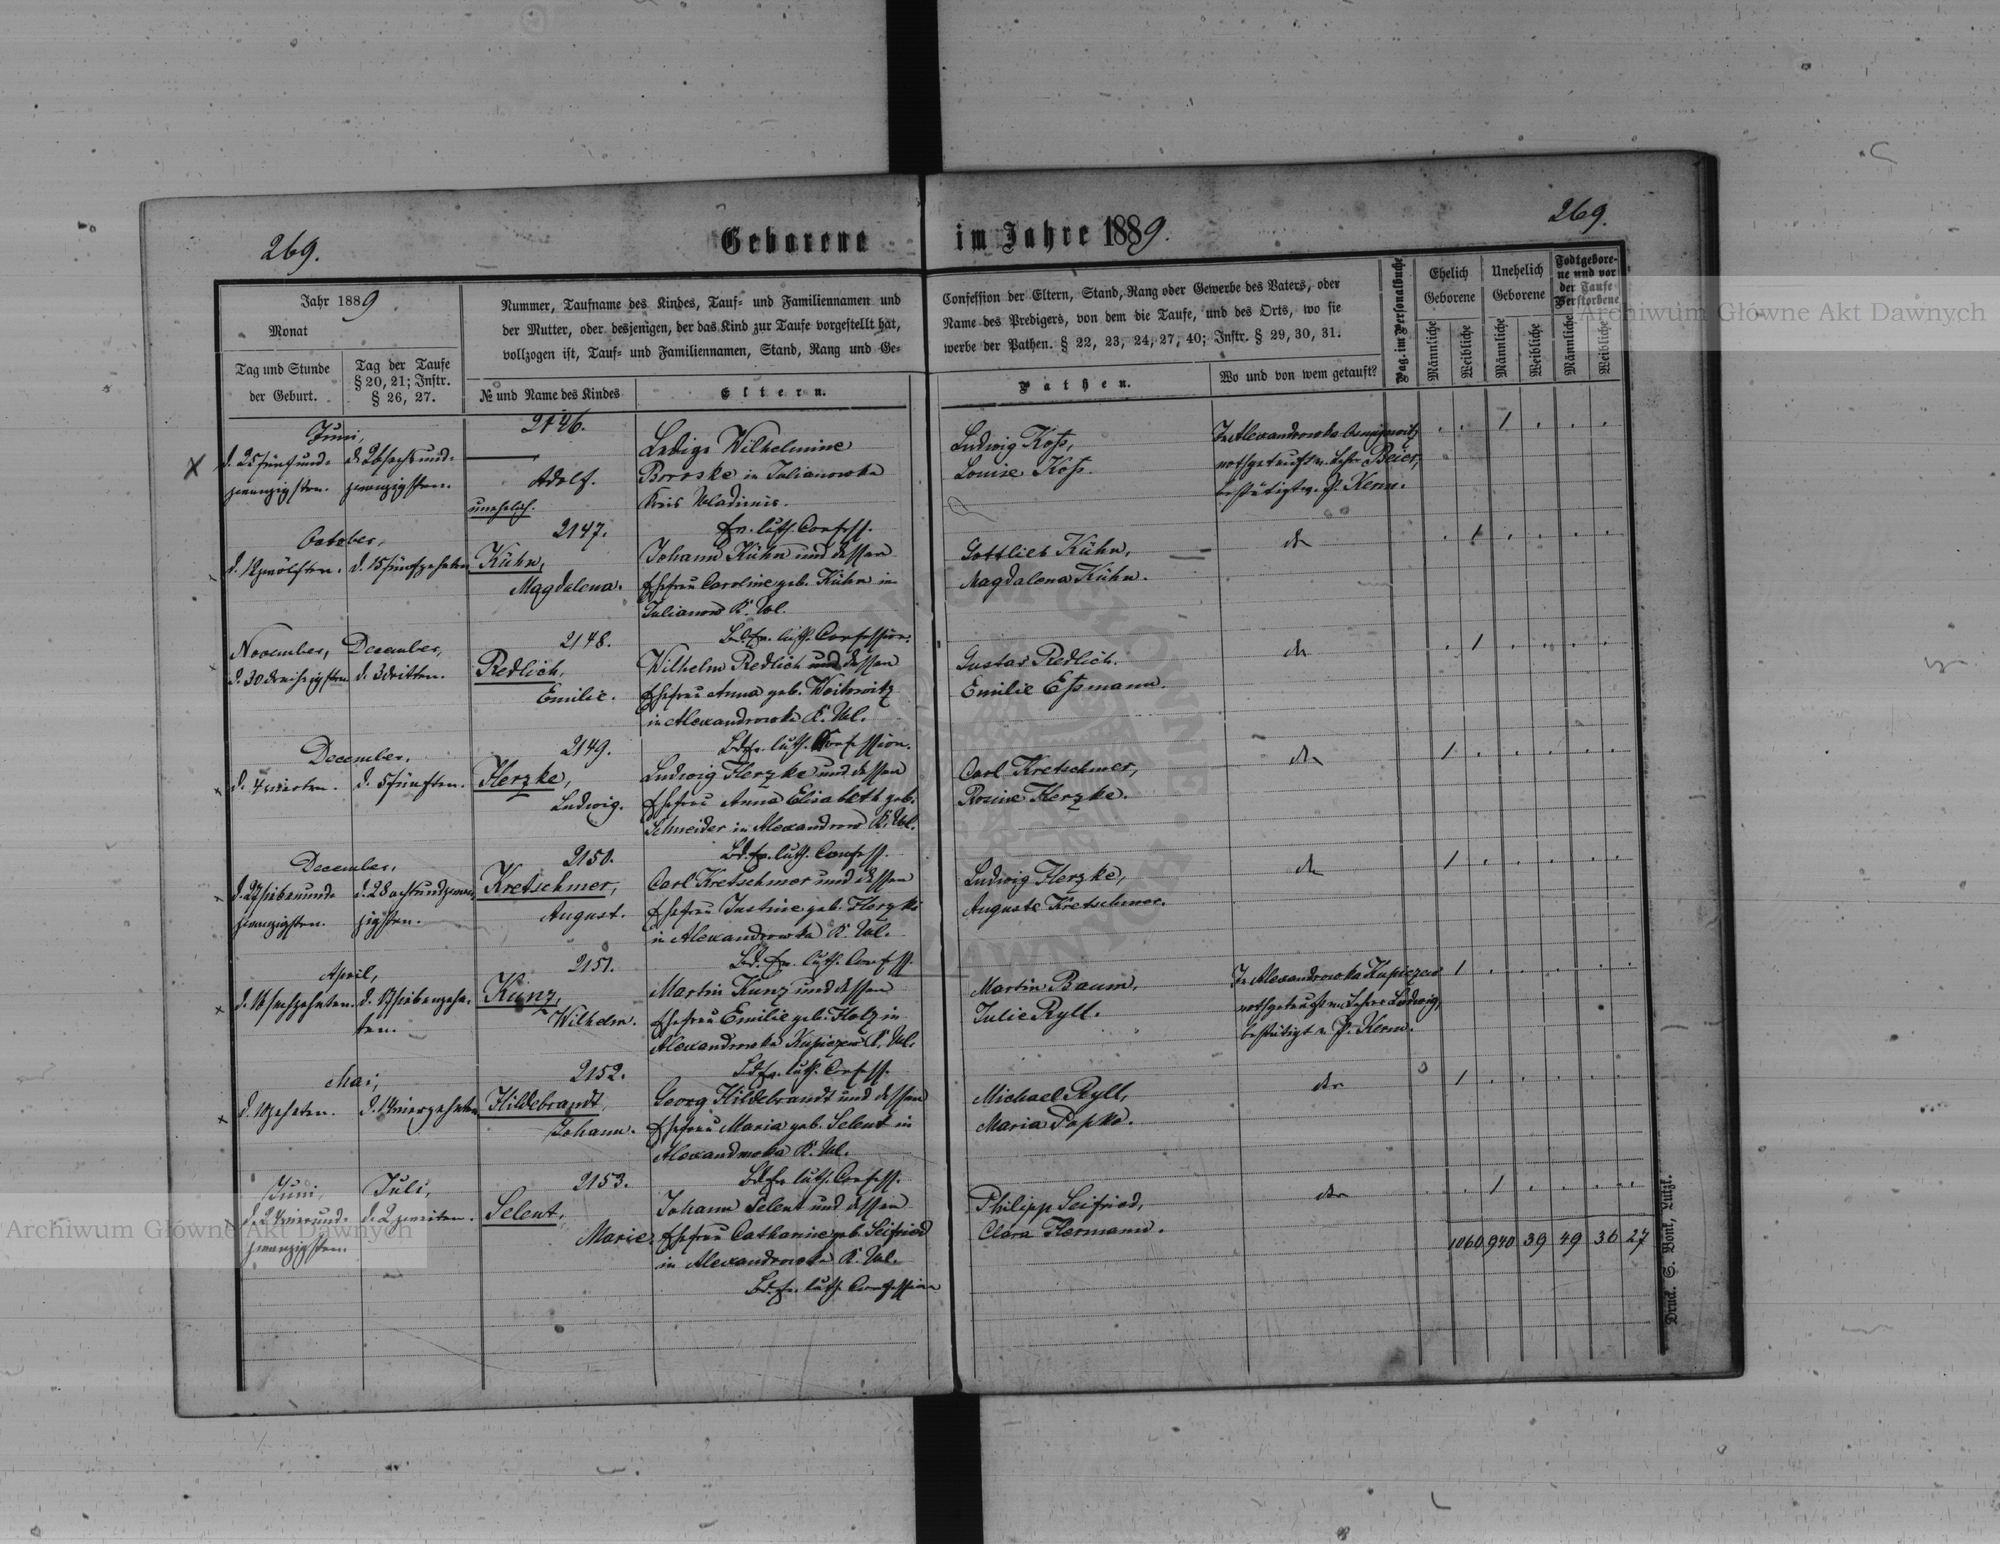 269.
Geborene im Jahre 1889.
269.
Jahr 1889
Monat
Tag und Stunde
der Geburt.
Tag der Taufe
§ 20, 21; Instr.
§ 26, 27.
Nummer, Taufname des Kindes, Tauf- und Familiennamen und
der Mutter, oder desjenigen, der das Kind zur Taufe vorgestellt hat,
vollzogen ist, Tauf- und Familiennamen, Stand, Rang und Ge-
№ und Name des Kindes
Eltern.
Confession der Eltern, Stand, Rang oder Gewerbe des Vaters, oder
Name des Predigers, von dem die Taufe, und des Orts, wo sie
werbe der Pathen. § 22, 23, 24, 27, 40; Instr. § 29, 30, 31.
Pathen.
Wo und von wem getauft?
Pag. im Personalbuche
Ehelich
Geborene
Unehelich
Geborene
Todtgebore-
ne und vor
der Taufe
Verstorbene
Männliche
Weibliche
Männliche
Weibliche
Männliche
Weibliche
Juni,
d. 25 fünfund-
zwanzigsten.
d. 26 sechsund-
zwanzigsten.
2146.
Adolf.
unehelich.
Ledige Wilhelmine
Boroske in Julianowka
Kreis Wladimir.
ev. luth. Confess.
Ludwig Koß,
Louise Koß.
In Alexandrowka
nothgetauft v. Lehr. Beier,
bestätigt v. P. Kern.
October,
d. 12 zwölften. d. 15 fünfzehnten
2147.
Kühn,
Magdalena.
Johann Kühn und dessen
Ehefrau Caroline geb. Kühn in
Julianow K. Wl.
Bd. ev. luth. Confession.
Gottlieb Kühn,
Magdalena Kühn.
November, December,
d. 30 dreißigsten d. 3 dritten.
2148.
Redlich,
Emilie.
Wilhelm Redlich und dessen
Ehefrau Anna geb. Woitowitz
in Alexandrowka K. Wl.
Bd. ev. luth. Confession.
Gustav Redlich.
Emilie Eßmann.
December,
d. 4 vierten. d. 5 fünften.
2149.
Herzke,
Ludwig.
Ludwig Herzke und dessen
Ehefrau Anna Elisabeth geb.
Schneider in Alexandrow K. Wl.
Bd. ev. luth. Confess.
Carl Kretschmer,
Rosine Herzke.
December,
d. 27 siebenund-
zwanzigsten.
d. 28 achtundzwan-
zigsten.
2150.
Kretschmer,
August.
Carl Kretschmer und dessen
Ehefrau Justine geb. Herzke
in Alexandrowka K. Wl.
Bd. ev. luth. Confess.
Ludwig Herzke,
Auguste Kretschmer.
April,
d. 16 sechzehnten. d. 17 siebenzehn-
ten.
2151.
Kunz,
Wilhelm.
Martin Kunz und dessen
Ehefrau Emilie geb. Holz in
Alexandrowka Kupiczew K. Wl.
Bd. ev. luth. Confess.
Martin Baum,
Julie Ryll.
In Alexandrowka Kupiczew
nothgetauft v. Lehrer Ludwig,
bestätigt v. P. Kern.
Mai,
d. 10 zehnten. d. 14 vierzehnten
2152.
Hildebrandt,
Johann.
Georg Hildebrandt und dessen
Ehefrau Maria geb. Selent in
Alexandrowka K. Wl.
Bd. ev. luth. Confess.
Michael Ryll,
Maria Popko.
Juni, Juli,
d. 24 vierund-
zwanzigsten.
d. 2 zweiten.
2153.
Selent,
Marie.
Johann Selent und dessen
Ehefrau Catharine geb. Seifried
in Alexandrowka K. Wl.
Bd. ev. luth. Confession
Philipp Seifried,
Clara Hermann.
1060 940 39 49 36 27
Druck. S. Bonk, Luzk.
Archiwum Główne Akt Dawnych
Archiwum Główne Akt Dawnych